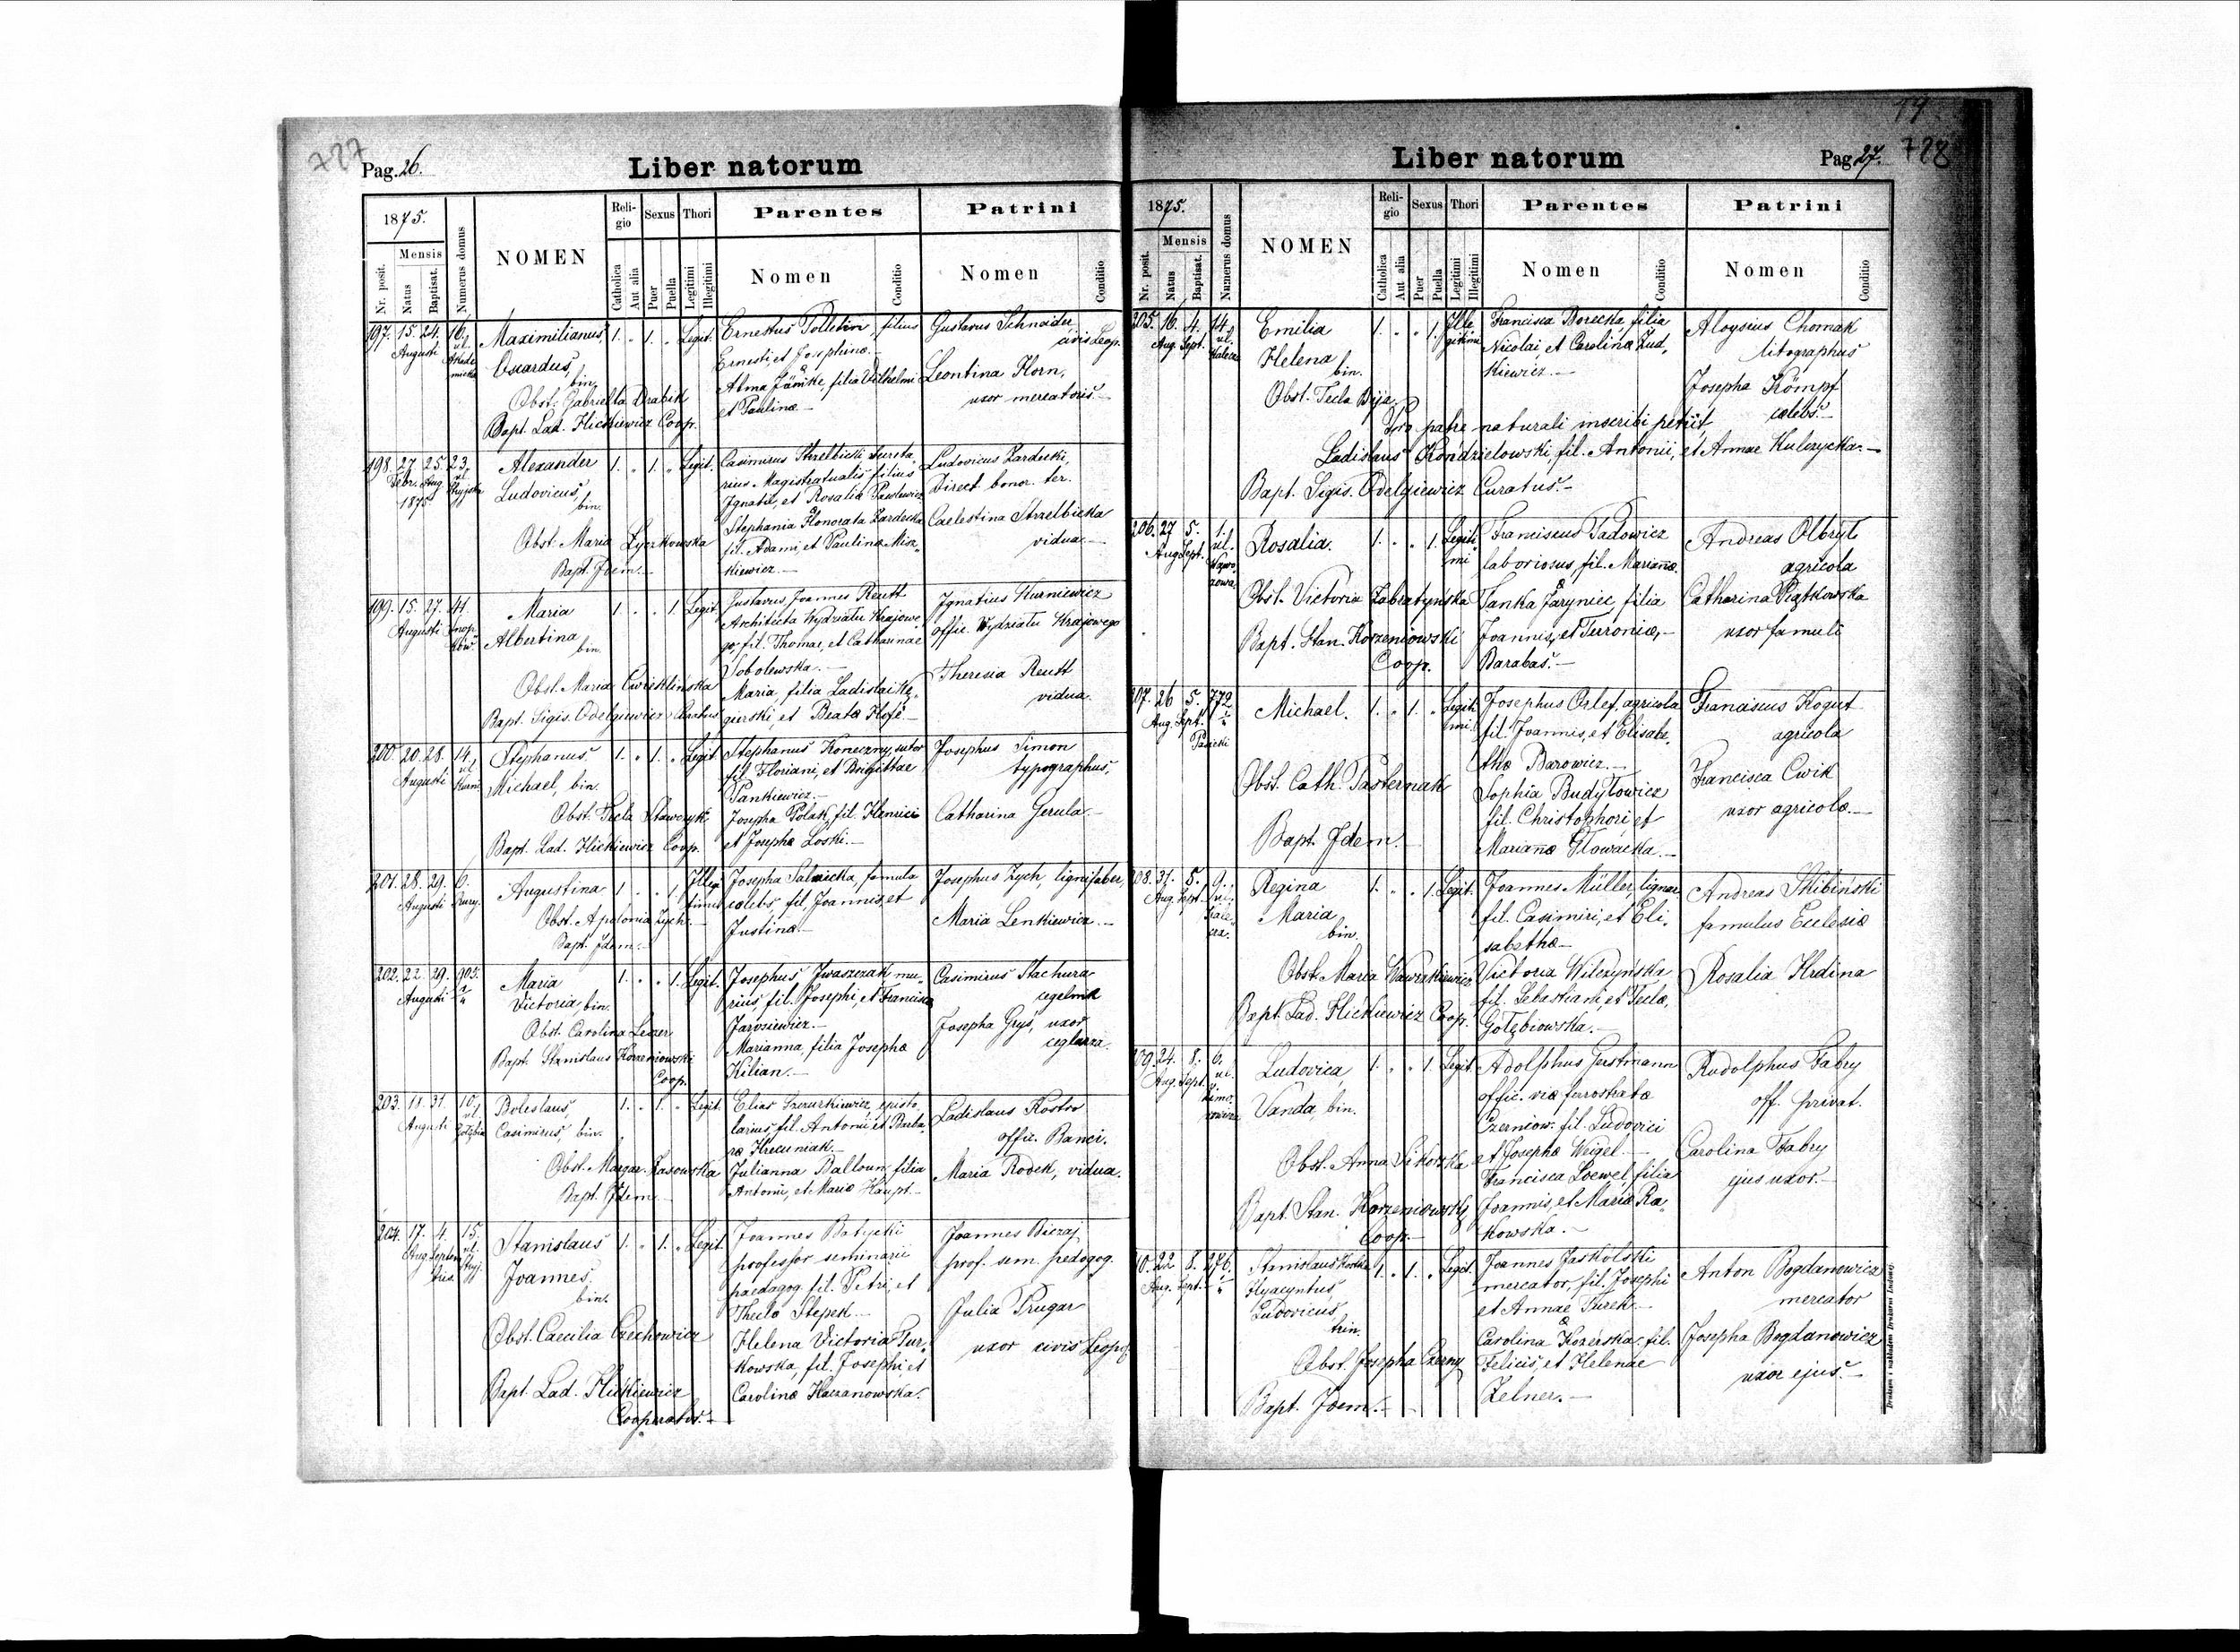 727
Pag. 26.
Liber natorum
1875.
Nr. posit.
Mensis
Natus
Baptisat.
Numerus domus
NOMEN
Religio
Catholica
Aut alia
Sexus
Puer
Puella
Thori
Legitimi
Illegitimi
Parentes
Nomen
Conditio
Patrini
Nomen
Conditio
197. 15. 24. 16. Maximilianus, 1. " 1. " Legit. Ernestus filius Gustavus Schneider
Augusti ul. Ernesti, et Josephinæ.— civis Leop.
Oscardus, &
bin. Alma filia Wilhelmi Leontina Horn,
Obst. Gabriella Drabik et Paulinæ— uxor mercatoris.—
Bapt. Lad. Hickiewicz Coop.
198. 27 25. 23. Alexander 1. " 1. " Legit. Casimirus Strzelbicki Ludovicus Zardecki,
Febr. Aug. ul. rius Magistratualis filius Direct. bonor. ter.
1875. Stryjska Ludovicus, Ignatii, et Rosalia Pawlewicz
bin. Stephania Honorata Zardecka Caelestina Strzelbicka
Obst. Maria Lyczkowska fil. Adami, et Paulinæ Misz- vidua—
Bapt. Idem.— kiewicz.—
199. 15. 27. 41. Maria 1. " " 1. Legit. Gustavus Joannes Reutt Ignatius Kurniewicz
Augusti Architecta Wydziału Krajowe- offic. Wydziału Krajowego
Albertina go, fil. Thomae, et Catharinae
bin. Sobolewska.— Theresia Reutt
Obst. Maria Ćwieklińska Maria, filia Ladislai vidua.
Bapt. Sigis. Odelgiewicz Curatus gierski, et Beatæ —
200. 20. 28. 14. Stephanus 1. " 1. " Legit Stephanus Koneczny, sutor Josephus Simon
Augusti ul. fil. Floriani, et Brigittae typographus,
Michael, bin. Pankiewicz.—
Obst. Tecla Stawczyk Josepha Polak, fil. Henrici Catharina Gerula—
Bapt. Lad. Hickiewicz Coop. et Josephæ Łoski.—
201. 28. 29. 6. Augustina 1 " " 1. Josepha famula Josephus Zych, lignifaber
Augusti Kury. cælebs fil. Joannis, et
Obst. Apolonia Zych.— Justinæ— Maria Lenkiewicz.—
Bapt. Idem.—
202. 22. 29. 903. Maria 1. " " 1. Legit. Josephus Iwaszczak mu- Casimirus Stachura
Augusti Victoria, bin. rius, fil. Josephi, et Francisca cegelnik
Obst. Carolina Jarosiewicz.— Josepha Gryś, uxor
Bapt. Stanislaus Korzeniowski Marianna, filia Josephæ ceglarza.
Coop. Kilian.—
203. 18. 31. 10. Boleslaus, 1. " 1. " Legit. Elias Szczurkiewicz, episto- Ladislaus Kostro
Augusti ul. Casimirus, bin. larius, fil. Antonii et Barba- offic. Banci.
Gołębia ræ
Obst. Margar. Zasowska Julianna Balloun, filia Maria Rodek, vidua.
Bapt. Idem— Antonii, et Mariæ Haupt.—
204. 17. 4. 15. Stanislaus 1. " 1. " Legit Joannes Batycki Joannes Biczaj
Aug. Septem ul. professor seminarii prof. sem. pedogog.
bris. Stryj. Joannes, paedagog. fil. Petri, et
bin. Theclæ Stepek— Julia Prugar
Obst. Caecilia Czechowicz Helena Victoria Tur- uxor civis Leopol.
kowska, fil. Josephi, et
Bapt. Lad. Hickiewicz Carolinæ Haczanowska.
Cooperator.—
19
Liber natorum
Pag. 27.
728
1875.
Nr. posit.
Mensis
Natus
Baptisat.
Numerus domus
NOMEN
Religio
Catholica
Aut alia
Sexus
Puer
Puella
Thori
Legitimi
Illegitimi
Parentes
Nomen
Conditio
Patrini
Nomen
Conditio
205. 16. 4. 14. Emilia 1. " " 1. Ille Francisca Borecka, filia Aloysius Chomak
Aug. Sept. ul. gitimi Nicolai, et Carolinæ Żud, litographus
Helena kiewicz.—
bin. Josepha Kömpf
Obst. Tecla Bija. cælebs.—
Pro patre naturali inscribi petiit,
Ladislaus Kondzielowski, fil. Antonii, et Annae Kulczycka.—
Bapt. Sigis. Odelgiewicz Curatus.—
206. 27 5. 1. Rosalia. 1. " " 1. Legiti Franciscus Padowicz Andreas Olbryt
Aug. Sept. ul. mi laboriosus, fil. Marianæ. agricola
&
Obst. Victoria Zabratynska Tanka Jaryniec filia Catharina Piątkowska
Bapt. Stan. Korzeniowski Joannis, et uxor famuli
Coop. Barabas.—
207. 26 5. 772 Michael. 1. " 1. " Legiti Josephus Orlef, agricola Franciscus Kogut
Aug. Sept. mi. fil. Joannis, et Elisabe- agricola
thæ Barowicz.—
Obst. Cath. Pasternak Sophia Budyłowicz Francisca Cwik
fil. Christophori et uxor agricolæ.—
Bapt. Idem. Mariannæ Głowacka.—
208. 31. 5. 9. Regina 1. " " 1. Legit. Joannes Müller, lignar. Andreas Skibiński
Aug. Sept. Maria fil. Casimiri, et Eli- famulus Ecclesiæ
bin. sabethæ—
Obst. Maria Wawrzkiewicz Victoria Wilczyńska Rosalia Hrdina
fil. Sebastiani, et Teclæ,
Bapt. Lad. Hickiewicz Coop. Gołębiowska.—
209. 24. 8. 6. Ludovica, 1. " " 1. Legit. Adolphus Gerstmann Rudolphus Fabry
Aug. Sept. ul. offic. viæ ferrostratæ off. privat.
Vanda, bin. Czerniow. fil. Ludovici
et Josephæ Weigel— Carolina Fabry
Obst. Anna Sikorska Francisca Loewel, filia ejus uxor.—
Bapt. Stan. Korzeniowski Joannis, et Mariæ Ra-
Coop.— kowska.—
10. 22 8. 276. Stanislaus Kostka 1. " 1. " Legit. Joannes Jaskolski Anton Bogdanowicz
Aug. Sept. Hyacyntus, mercator, fil. Josephi mercator
Ludovicus, et Annae Turek—
trin. Carolina fil. Josepha Bogdanowicz
Obst. Josepha Czerny Felicis, et Helenae uxor ejus.—
Bapt. Idem.— Zelner.—